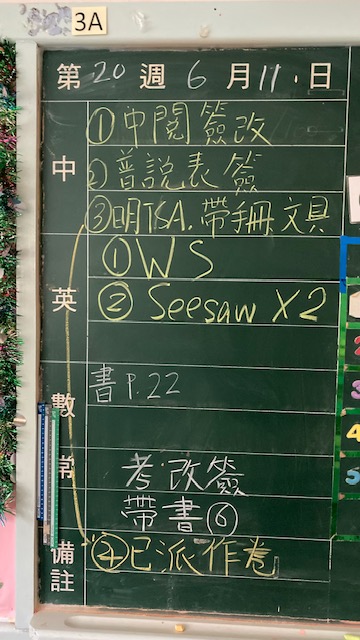 3A
第20週6月11日
中 ①中閱簽改
②普說表簽
③明TSA.帶手冊文具
英 ①WS
②Seesaw X2
數 書P.22
常 考·改簽
帶書⑥
備註 ④已派作卷